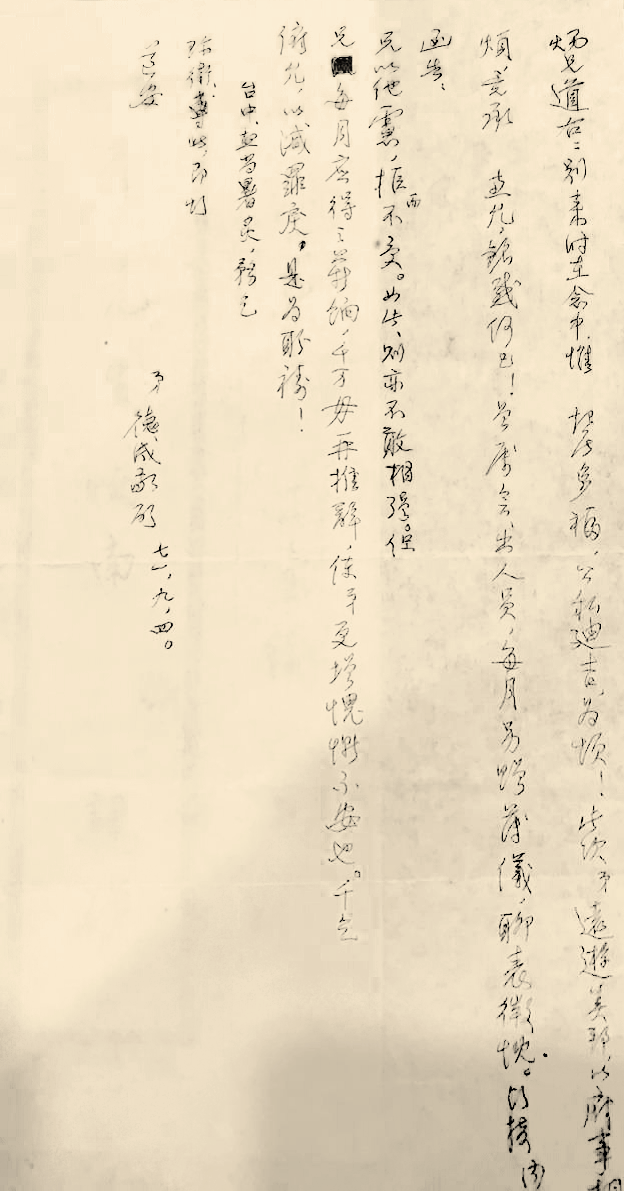 炳兄道右:別來時在念中,惟 起居多福,公私迪吉,為頌!此次弟遠遊美邦,以府事相
煩,竟承 惠允,銘感何已!曾囑會出人員,每月另贈薄儀,聊表微忱。頃接
函告,
兄以他慮,拒而不受。如此,則亦不敢相強。但
兄每月應得之薪餉,千万毋再推辭,使弟更增愧慚不安也。千乞
俯允,以減罪戾。是為盼禱!
台中,想尚暑炅,務乞
珍衛,專此,即頌
道安
弟 德成敬啟 七一、九、四。